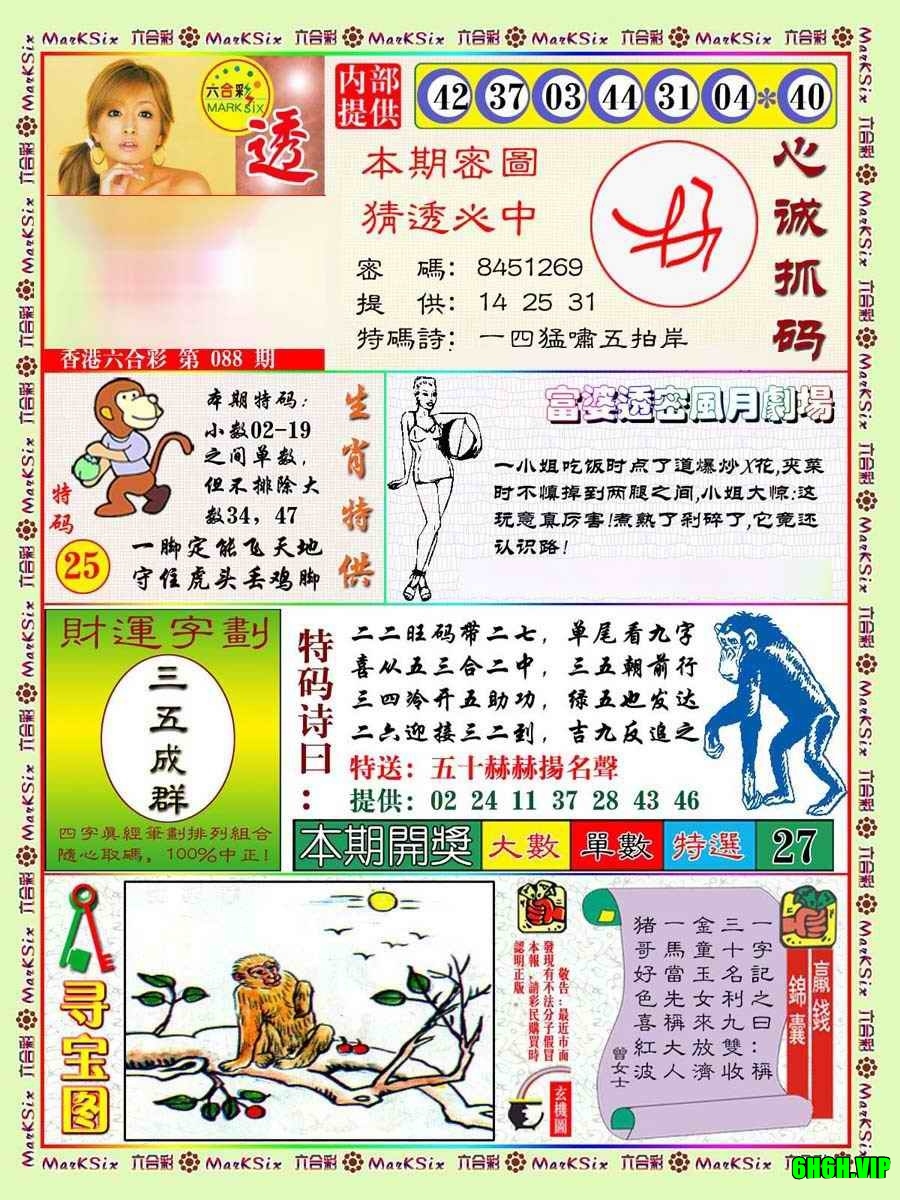 MarKSix 六合彩 MarKSix 六合彩 MarKSix 六合彩 MarKSix 六合彩 MarKSix 六合彩
六合彩
MARK SIX
透
内部
提供
42 37 03 44 31 04 * 40
本期密圖
猜透必中
密 碼：8451269
提 供：14 25 31
特碼詩：一四猛嘯五拍岸
心诚抓码
香港六合彩 第 088 期
本期特码：
小数02-19
之间单数，
但不排除大
数34，47
生肖特供
特码
25
一脚定能飞天地
守住虎头丢鸡脚
富婆透密風月劇場
一小姐吃饭时点了道爆炒X花,夹菜
时不慎掉到两腿之间,小姐大惊:这
玩意真厉害!煮熟了剁碎了,它竟还
认识路!
財運字劃
三五成群
四字真經筆劃排列組合
隨心取碼，100%中正!
特码诗曰：
二二旺码带二七，单尾看九字
喜从五三合二中，三五朝前行
三四冷开五助功，绿五也发达
二六迎接三二到，吉九反追之
特送：五十赫赫揚名聲
提供：02 24 11 37 28 43 46
本期開獎 大數 單數 特選 27
寻宝图
敬告:最近市面
發現有不法分子假冒
本報,請彩民購買時
認明正版。
玄機圖
贏錢
錦囊
一字記之曰：稱
三十名利九雙收
金童玉女來放濟
一馬當先稱大人
猪哥好色喜紅波
曾女士
MarKSix 六合彩 MarKSix 六合彩 MarKSix 六合彩 MarKSix 六合彩 MarKSix 六合彩
6H6H.VIP